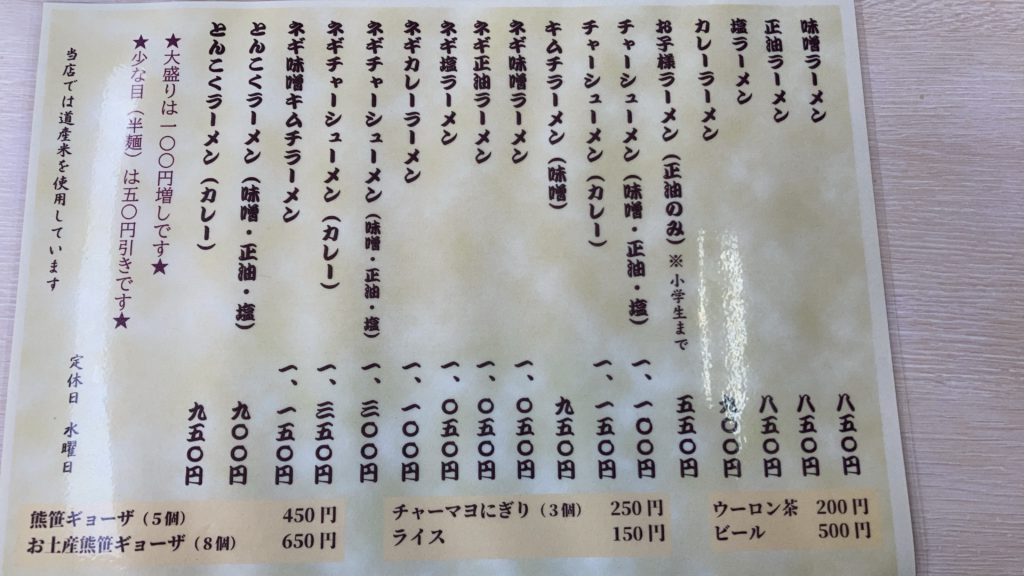 味噌ラーメン 八五〇円
正油ラーメン 八五〇円
塩ラーメン 八五〇円
カレーラーメン 九〇〇円
お子様ラーメン（正油のみ）※小学生まで 五五〇円
チャーシューメン（味噌・正油・塩） 一、一〇〇円
チャーシューメン（カレー） 一、一五〇円
キムチラーメン（味噌） 九五〇円
ネギ味噌ラーメン 一、〇五〇円
ネギ正油ラーメン 一、〇五〇円
ネギ塩ラーメン 一、〇五〇円
ネギカレーラーメン 一、一〇〇円
ネギチャーシューメン（味噌・正油・塩） 一、三〇〇円
ネギチャーシューメン（カレー） 一、三五〇円
ネギ味噌キムチラーメン 一、一五〇円
とんこくラーメン（味噌・正油・塩） 九〇〇円
とんこくラーメン（カレー） 九五〇円
★大盛りは一〇〇円増しです★
★少な目（半麺）は五〇円引きです★
当店では道産米を使用しています
定休日 水曜日
熊笹ギョーザ（5個） 450円
お土産熊笹ギョーザ（8個） 650円
チャーマヨにぎり（3個） 250円
ライス 150円
ウーロン茶 200円
ビール 500円